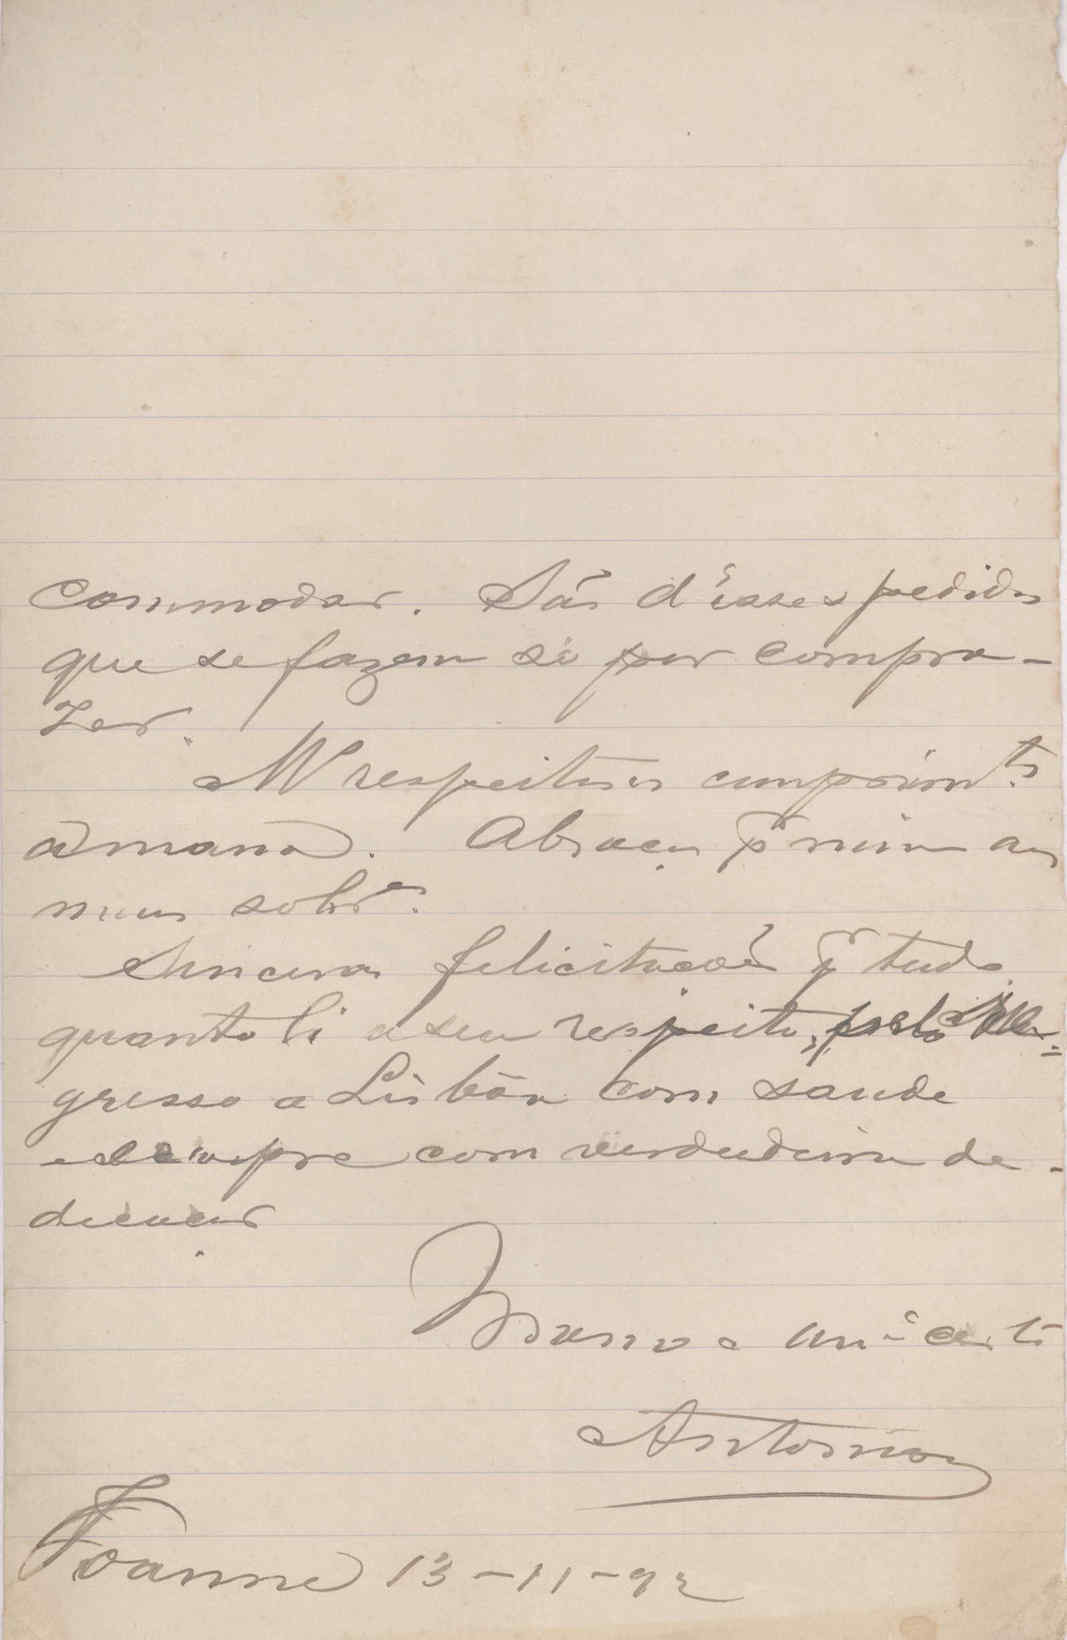 commodar. São d'esses pedidos
que se fazem só por compra-
zer.
M respeitosos cumprimtos
á mana. Abraços pr mim aos
meus sobros.
Sinceras felicitações pr tudo
quanto li a seu respeito, pelo
gresso a Lisbôa com saude
e sempre com verdadeira de-
dicaçar
Mano e amo certo
Antonio
Joanne 13-11-92